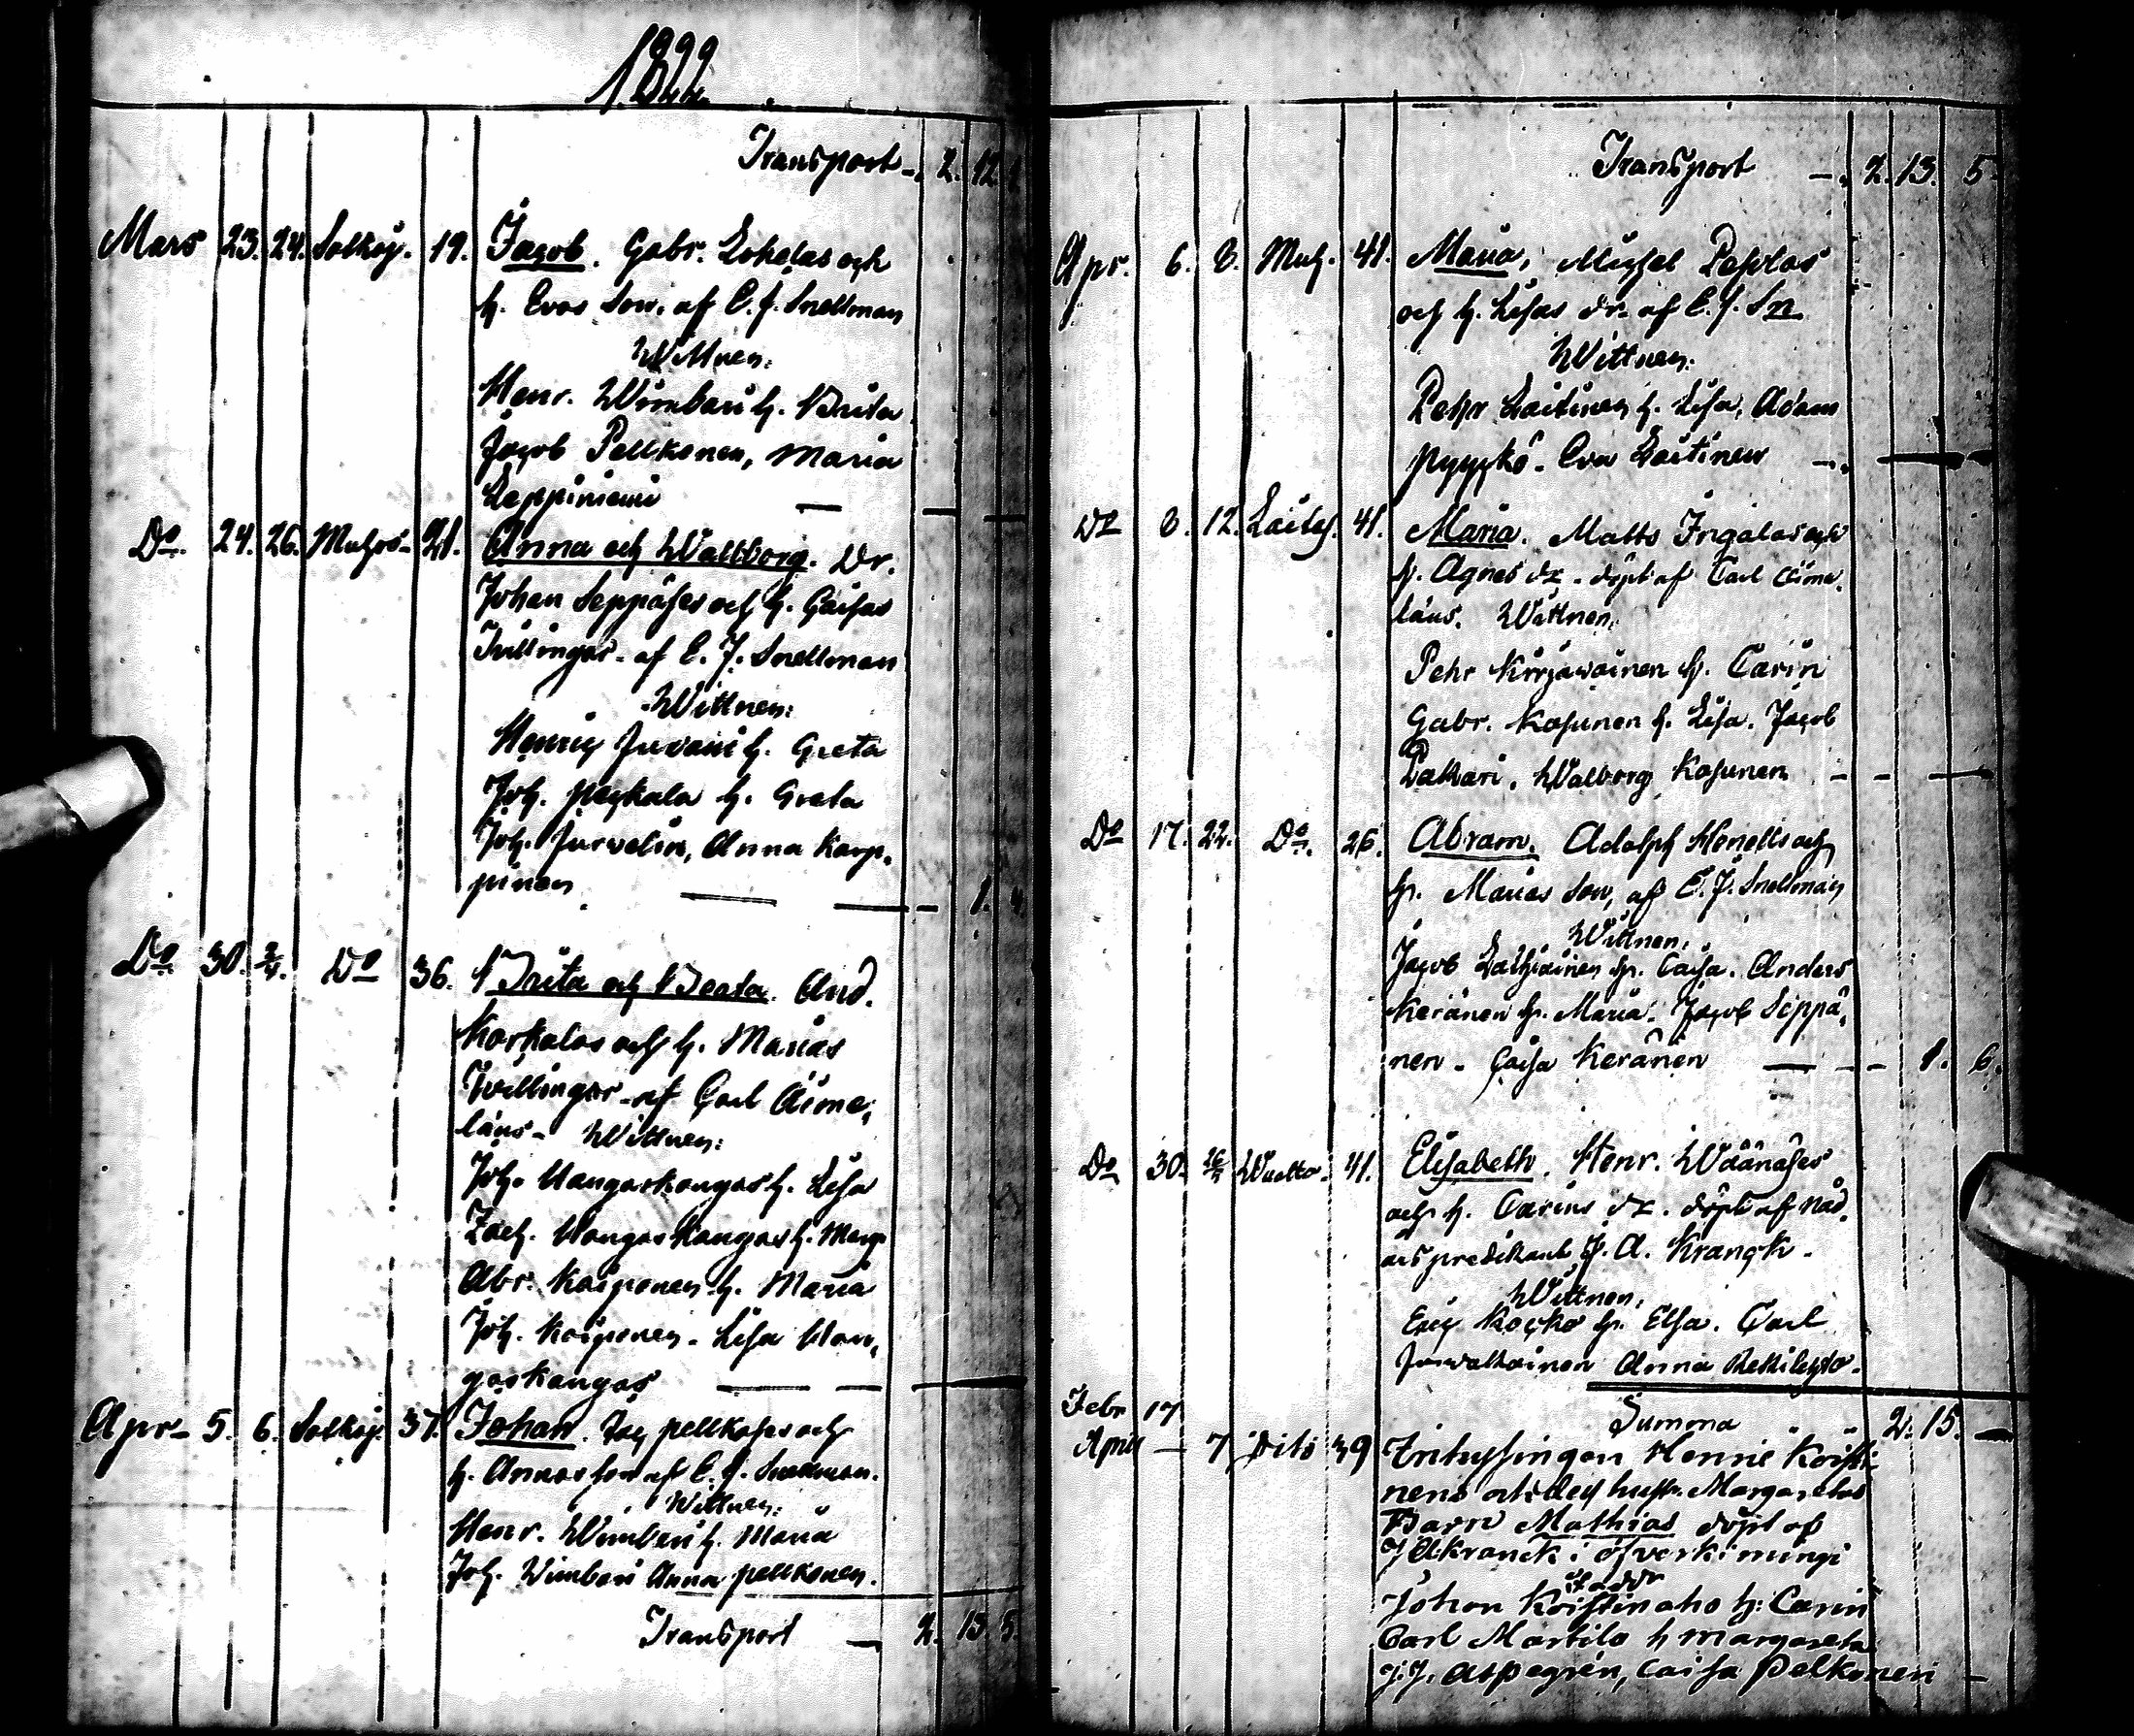 1822
Transport - 2. 12.
Mars 23. 24. Solkoj. 19. Jacob. Gabr. Lokelas och
h. Evas Son. af E. J. Snellman
Wittnen:
Henr. Wimbari h. Brita
Jacob Pellkonen, Maria
Leppiniemi —
Do. 24. 26. Muhos- 21. Anna och Wallborg. Dr.
Johan Seppäses och h. Caisas
Tvillingar. af E. J. Snellman
Wittnen:
Henric Juvani h. Greta
Joh. h. Greta
Joh. Jurvelin, Anna Karp-
pinen — 1.
Do. 30. 2/4. Do 36. Brita och Beata. And.
Korkalas och h. Marias
Tvillingar af Carl Aime-
läus- Wittnen:
Joh. Mangaskangas h. Lisa
Zach. Mangaskangas h. Marg.
Abr. Koiponen h. Maria
Joh. Koiponen - Lisa Man-
gaskangas —
Apr- 5. 6. Solkoj. 37. Johan. Jac pellkoses och
h. Annas son af E. J. Snellman.
Wittnen:
Henr. Wimbari h. Maria
Joh. Wimbari Anna pellkonen.
Transport — 2. 13 5.
Transport — 2. 13. 5
Apr. 6. 8. Muh. 41. Maria, Michel Pesolas
och h. Lisas dr. af E. J. Sn
Wittnen:
Pehr Laitinen h. Lisa, Adam
Pyykkö. Eva Laitinen —
Do 8. 12. Laitas. 41. Maria. Matts Ingalas och
h. Agnes dr. döpt af Carl Aime-
läus. Wittnen,
Pehr Kirjawainen h. Carin
Gabr. Kosunen h. Lisa. Jacob
Lakkari, Walborg Kosunen —
Do 17. 22. Do. 26. Abram. Adolph Henells och
h. Marias Son, af E. J. Snellman
Wittnen,
Jacob h. Caisa. Anders
Keränen h. Maria. Jacob Seppä-
nen. Caisa Keränen — 1. 6.
Do 30. Wuotto. 41. Elisabeth. Henr. Wäänäses
och h. Carins dr. döpt af Nåd-
årspredikant J. A. Kranck.
Wittnen,
Eric Kocko h. Elsa. Carl
Juvakainen Anna
Summa 2. 15. —
Febr 17
April — 7 Dito 39 Inhysingen Henric Koisti-
nens och dess hustr. Margaretas
Barn Mathias döpt af
J A Kranck i öfverkimingi
Faddr
Johan Koistinaho h: Carin
Carl Martilo h margareta
J. J. Aspegrén, Caisa Pelkonen —